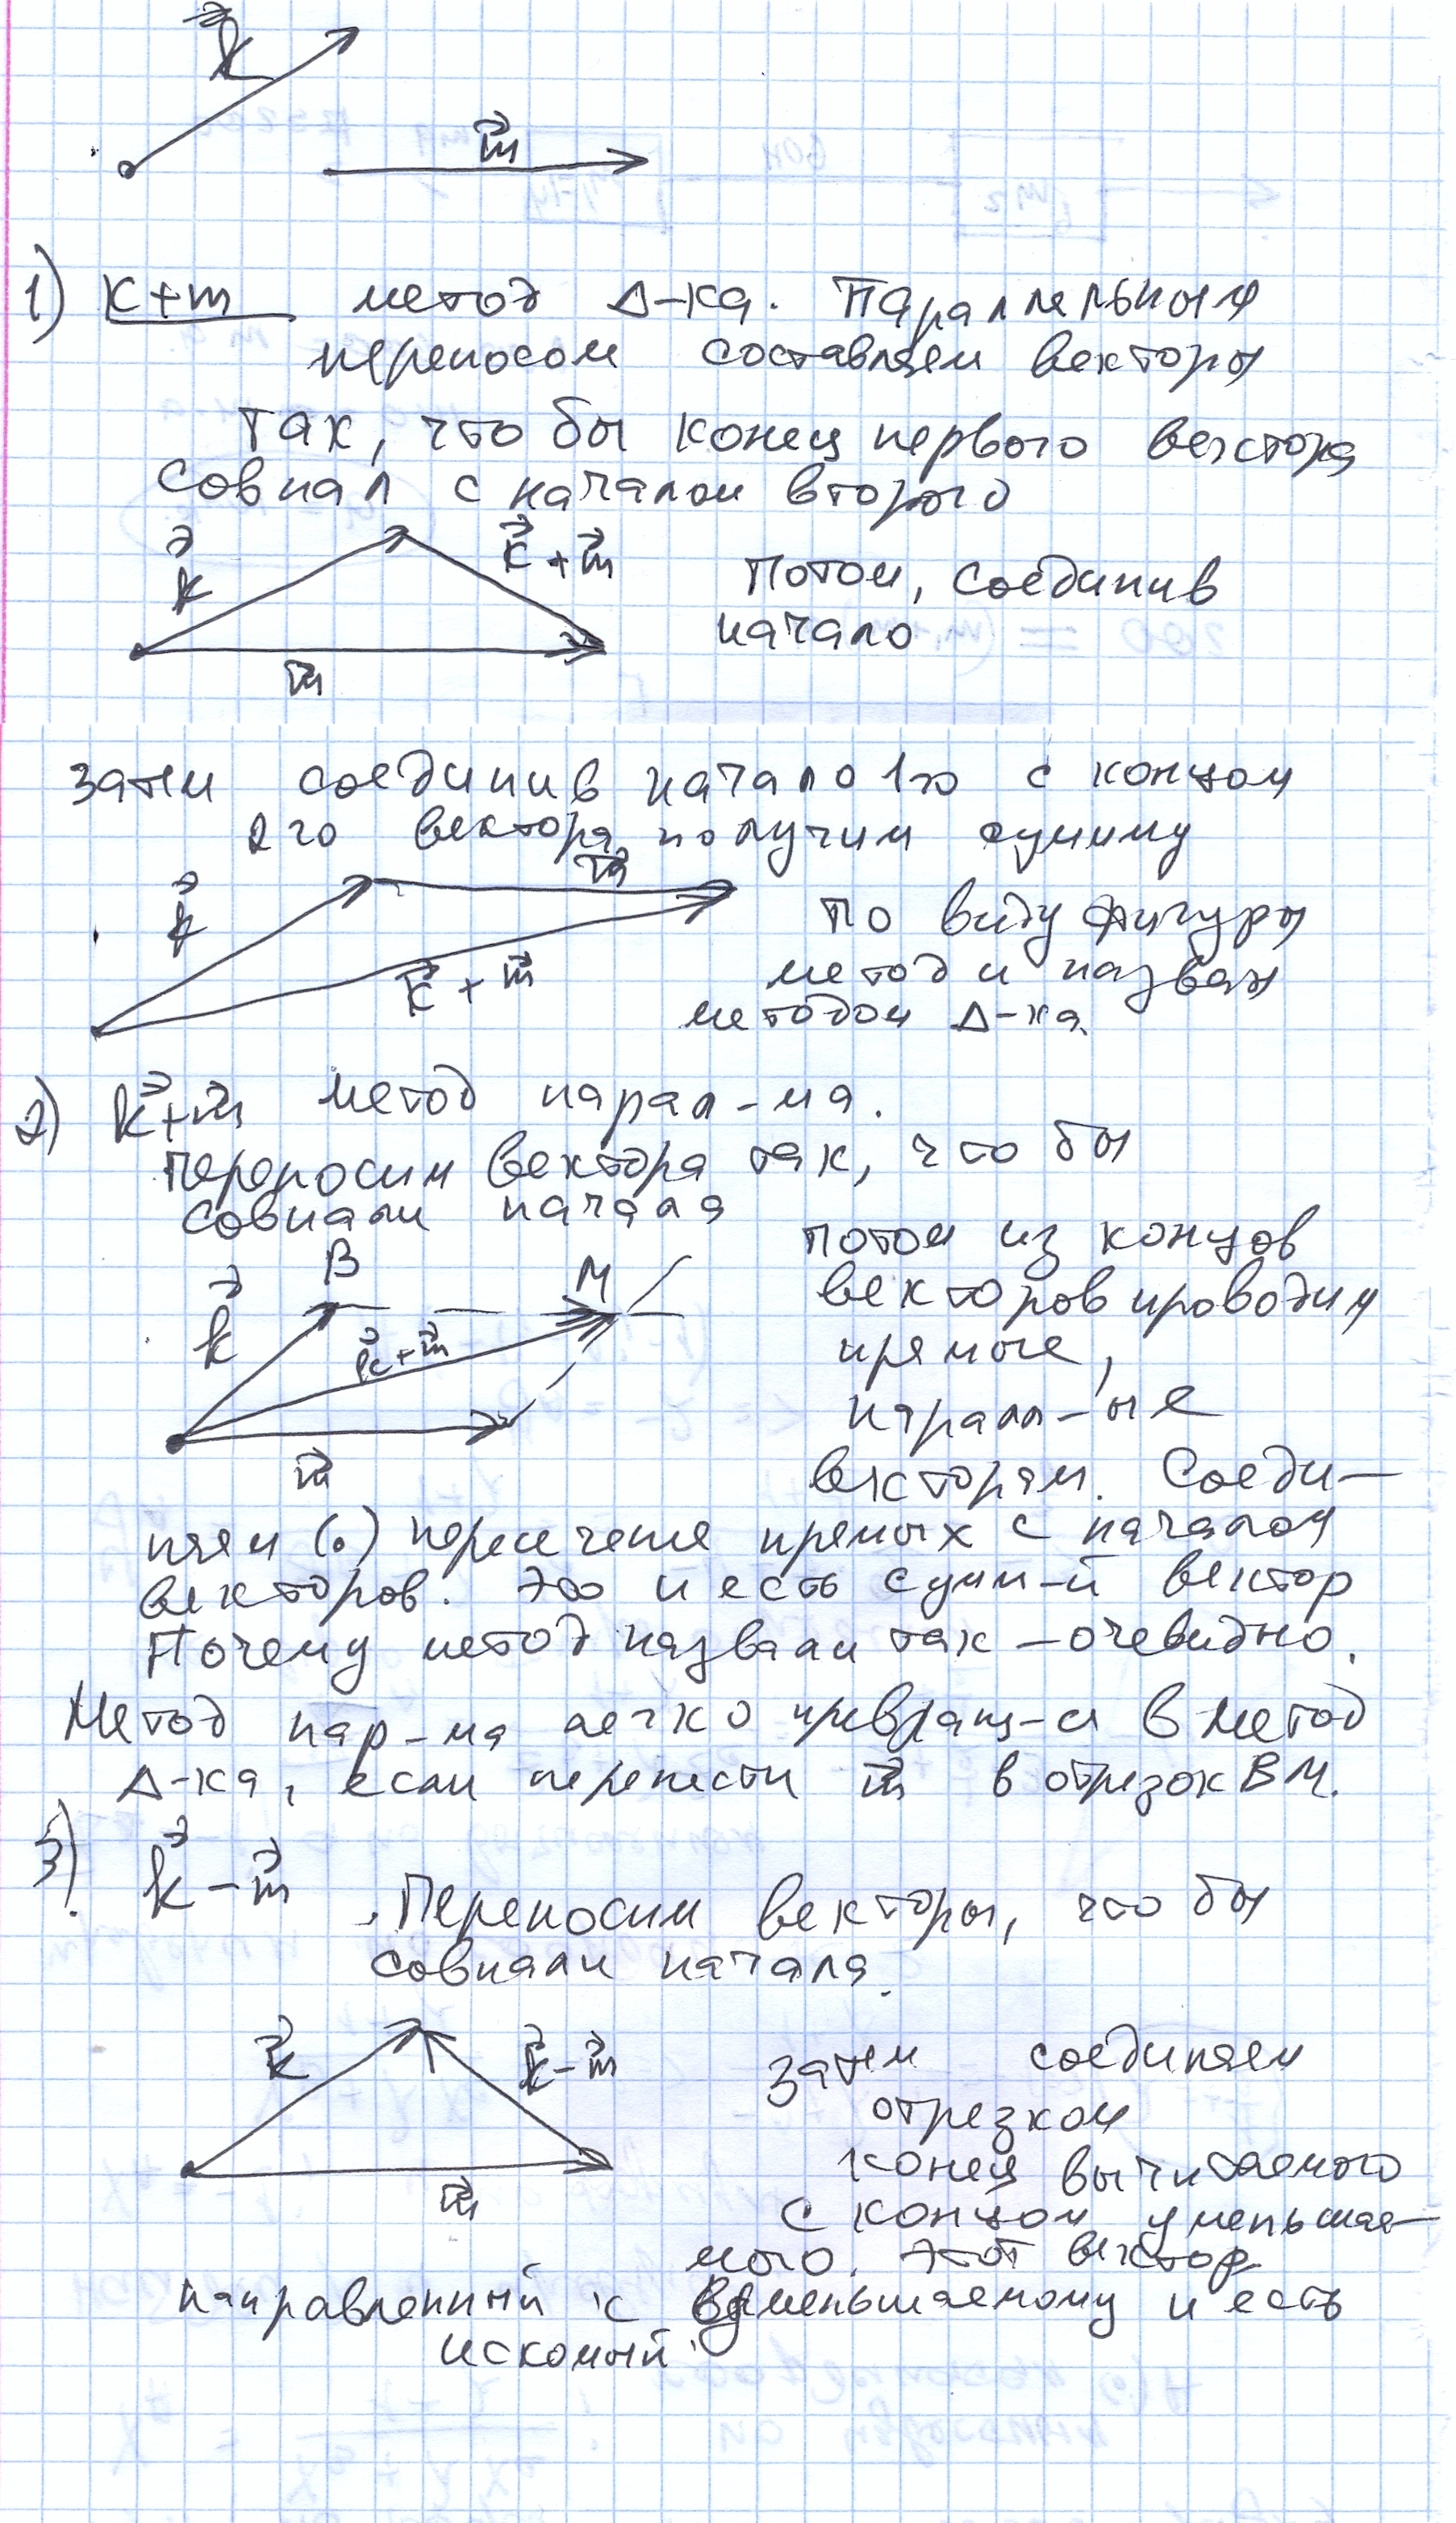 k⃗
m⃗
1) k+m метод Δ-ка. Параллельным
переносом составляем векторы
так, что бы конец первого вектора
совпал с началом второго
k⃗
k⃗+m⃗
m⃗
потом, соединив
начало
затем соединив начало 1го с концом
2го вектора, получим сумму
k⃗
m⃗
k⃗+m⃗
по виду фигуры
метод и назван
методом Δ-ка
2) k⃗+m⃗ метод парал-ма.
переносим вектора так, что бы
совпали начала
k⃗
B
M
k⃗+m⃗
m⃗
потом из концов
векторов проводим
прямые,
паралл-ые
векторам. Соеди-
няем (.) пересечения прямых с началом
векторов. Это и есть сумм-й вектор
Почему метод назвали так – очевидно.
Метод пар-ма легко превращ-ся в метод
Δ-ка, если перенести m⃗ в отрезок BM.
3) k⃗-m⃗. Переносим векторы, что бы
совпали начала.
k⃗
k⃗-m⃗
m⃗
затем соединяем
отрезком
конец вычитаемого
с концом уменьшае-
мого. Этот вектор
направленный к уменьшаемому и есть
искомый